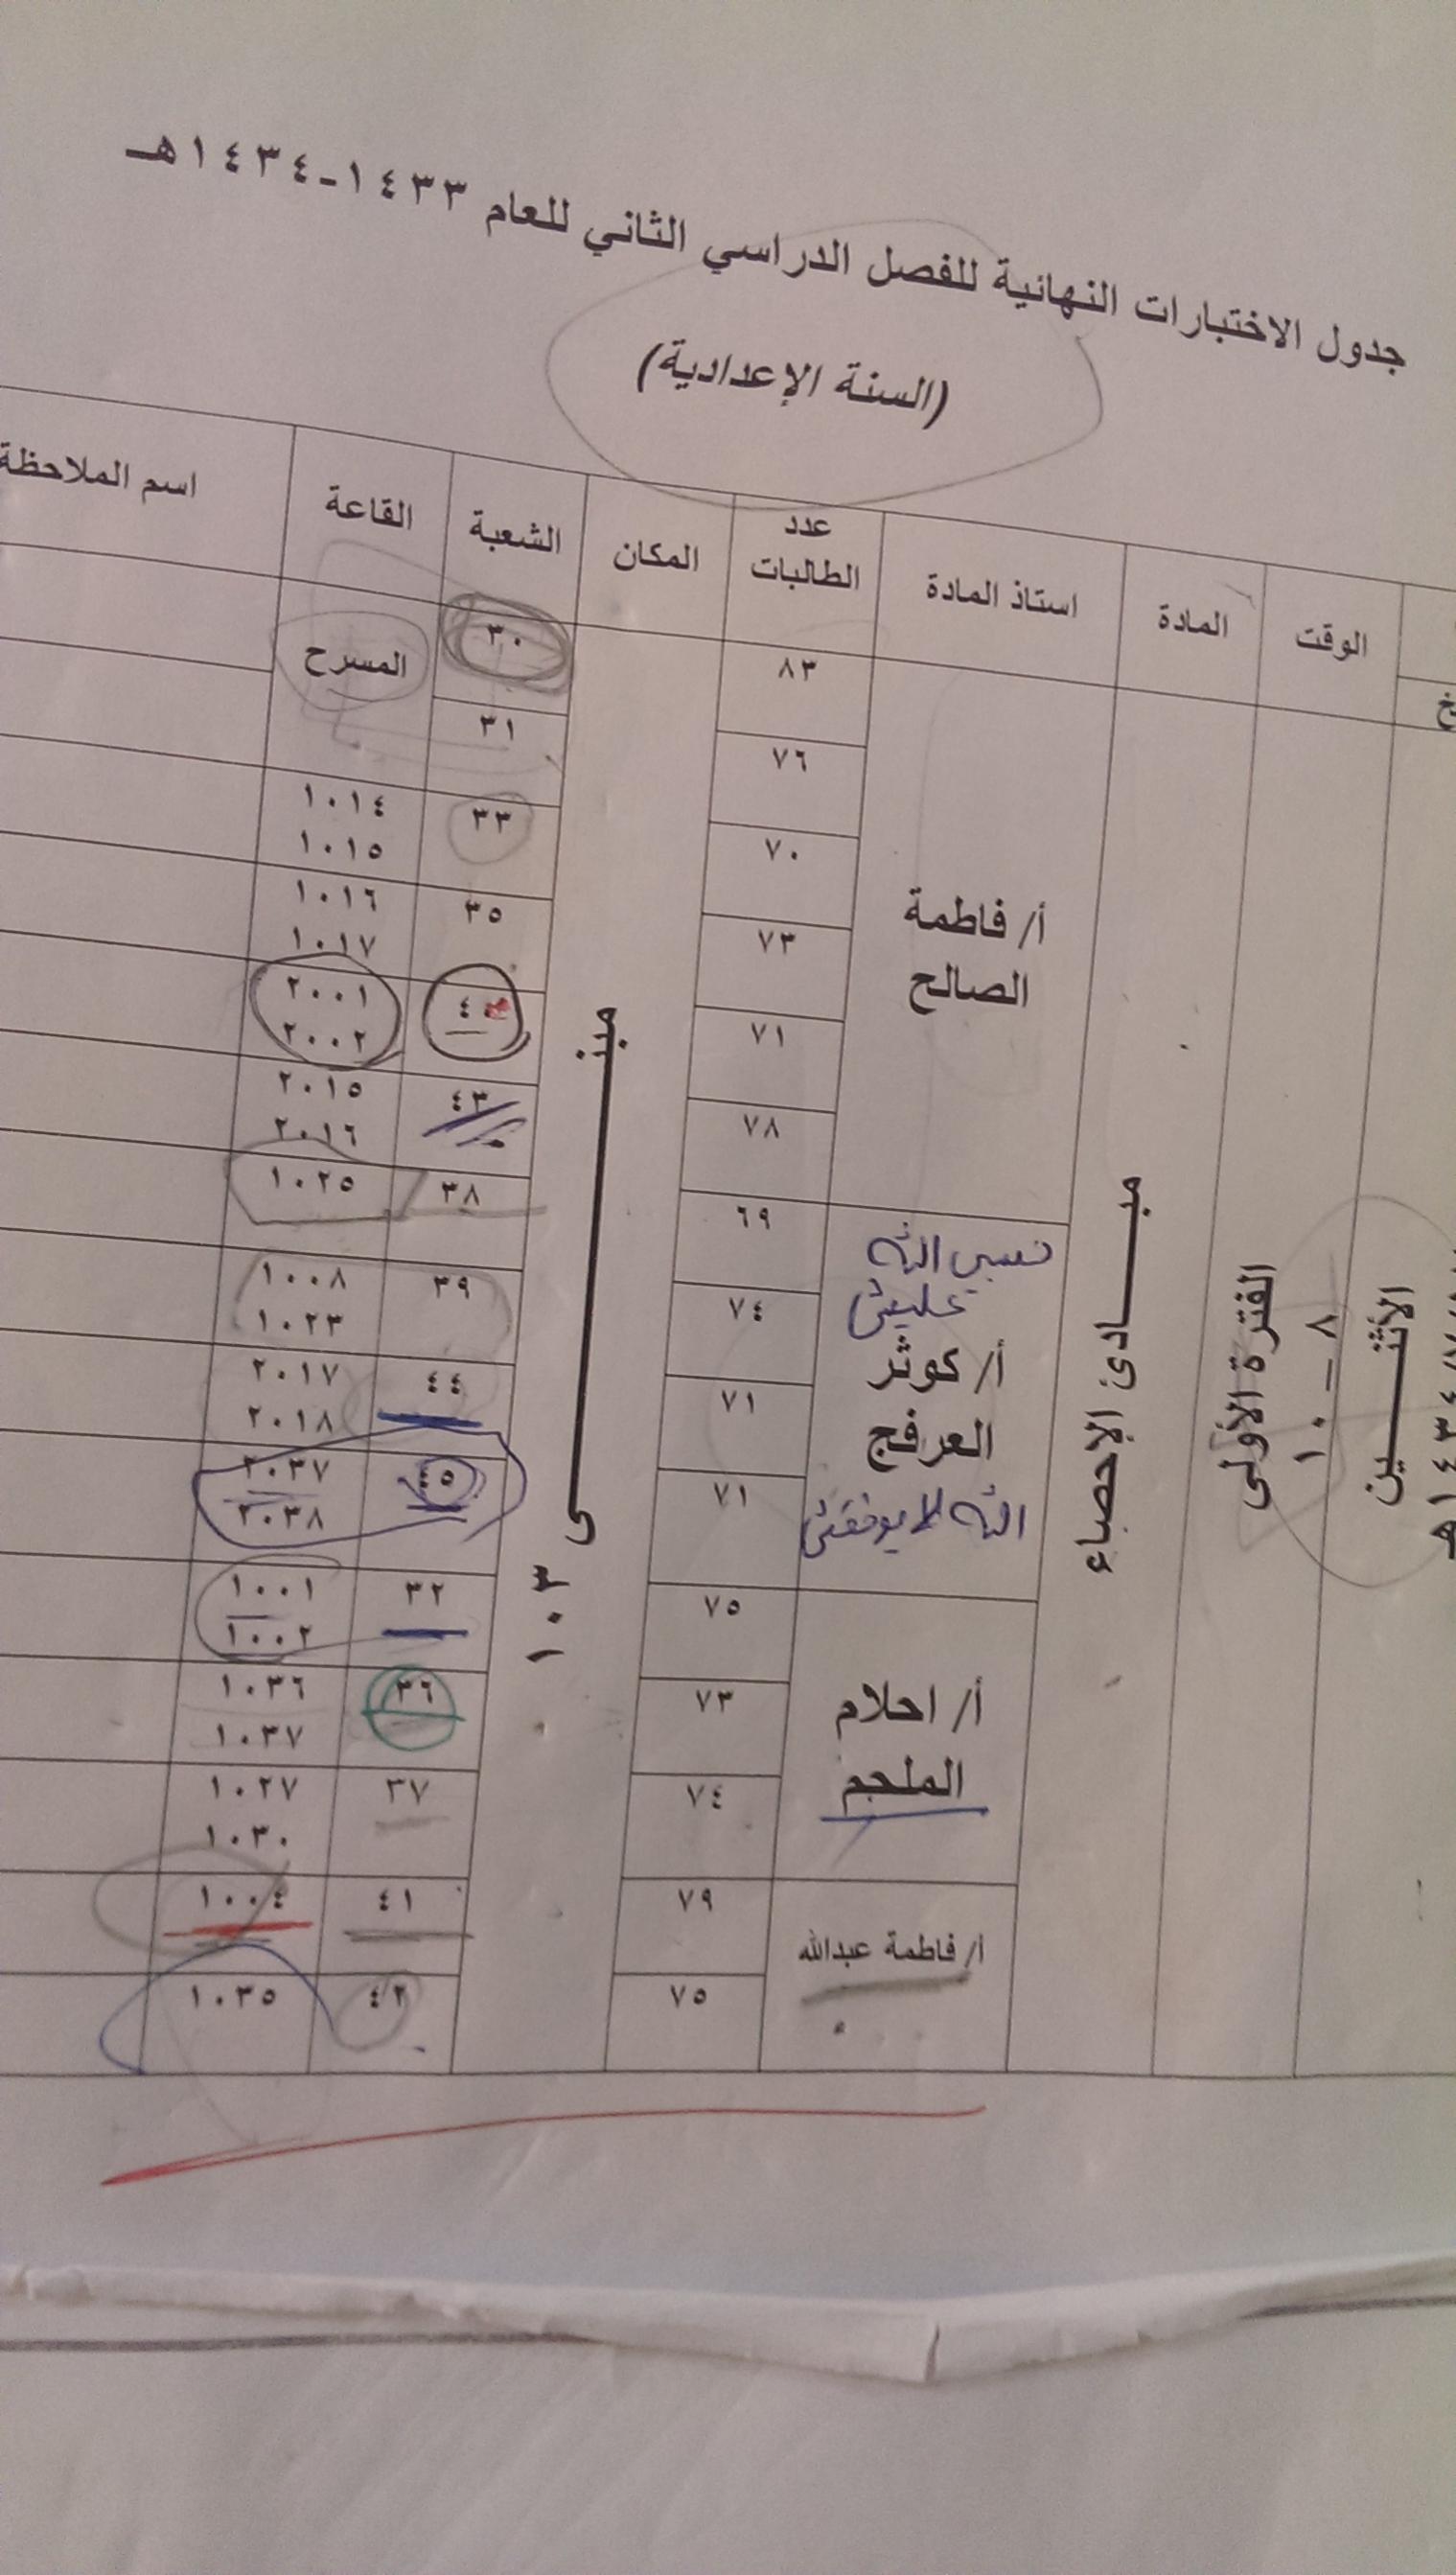 جدول الاختبارات النهائية للفصل الدراسي الثاني للعام ١٤٣٣-١٤٣٤هـ
(السنة الإعدادية)
الوقت المادة استاذ المادة عدد الطالبات المكان الشعبة القاعة اسم الملاحظة
الأثنـــــين
٨ – ١٠
الفترة الأولى
مبـــــادئ الإحصاء
مبنـــــى ١٠٣
أ/ فاطمة
الصالح
٨٣ ٣٠ المسرح
٧٦ ٣١
٧٠ ٣٣ ١٠١٤
١٠١٥
٧٣ ٣٥ ١٠١٦
١٠١٧
٧١ ٤٠ ٢٠٠١
٢٠٠٢
٧٨ ٤٣ ٢٠١٥
٢٠١٦
حسبي الله
عليش
أ/ كوثر
العرفج
الله لا يوفقش
٦٩ ٣٨ ١٠٢٥
٧٤ ٣٩ ١٠٠٨
١٠٢٣
٧١ ٤٤ ٢٠١٧
٢٠١٨
٧١ ٤٥ ٢٠٣٧
٢٠٣٨
أ/ احلام
الملحم
٧٥ ٣٢ ١٠٠١
١٠٠٢
٧٣ ٣٦ ١٠٣٦
١٠٣٧
٧٤ ٣٧ ١٠٢٧
١٠٣٠
أ/ فاطمة عبدالله
٧٩ ٤١ ١٠٠٤
٧٥ ٤٢ ١٠٣٥